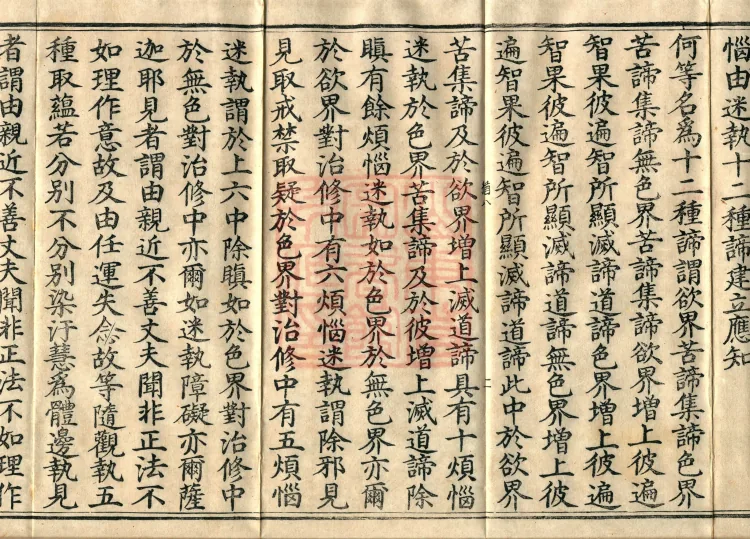 惱由迷執十二種諦建立應知
何等名爲十二種諦謂欲界苦諦集諦色界
苦諦集諦無色界苦諦集諦欲界增上彼遍
智果彼遍智所顯滅諦道諦色界增上彼遍
智果彼遍智所顯滅諦道諦無色界增上彼
遍智果彼遍智所顯滅諦道諦此中於欲界
苦集諦及於欲界增上滅道諦具有十煩惱
迷執於色界苦集諦及於彼增上滅道諦除
瞋有餘煩惱迷執如於色界於無色界亦爾
於欲界對治修中有六煩惱迷執謂除邪見
見取戒禁取疑於色界對治修中有五煩惱
迷執謂於上六中除瞋如於色界對治修中
於無色對治修中亦爾如迷執障礙亦爾薩
迦耶見者謂由親近不善丈夫聞非正法不
如理作意故及由任運失念故等隨觀執五
種取蘊若分別不分別染汙慧爲體邊執見
者謂由親近不善丈夫聞非正法不如理作